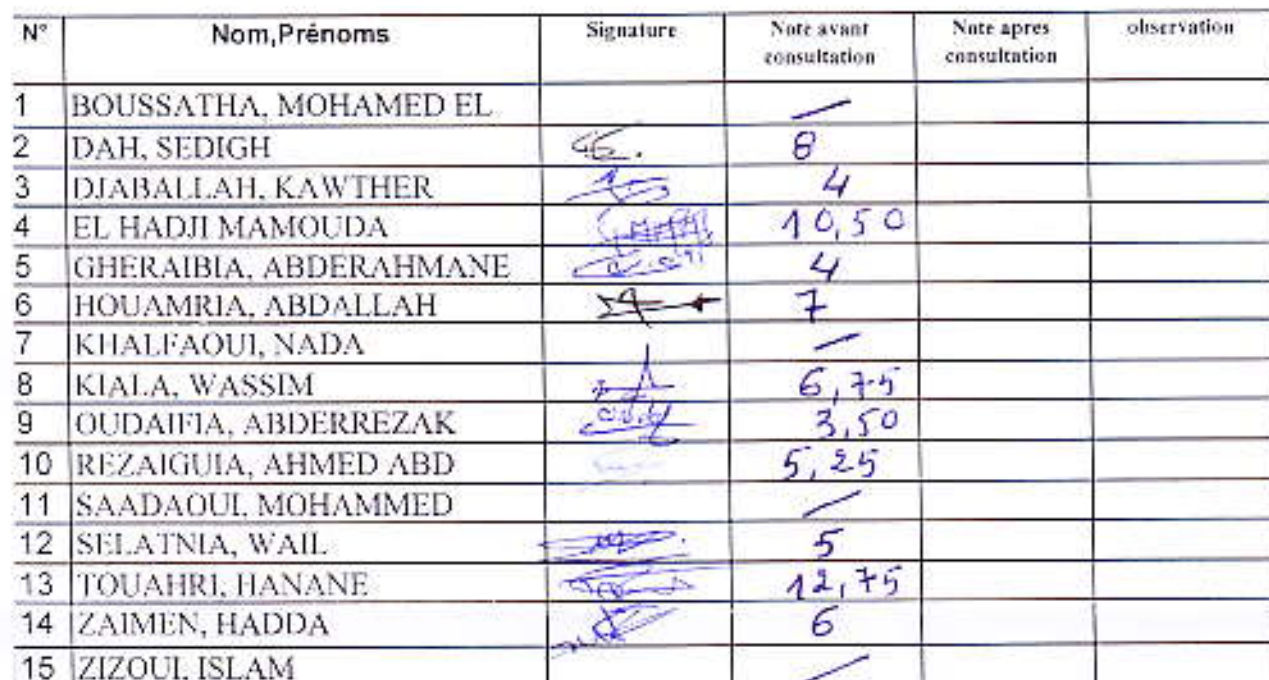 N° Nom,Prénoms Signature Note avant consultation Note apres consultation observation
1 BOUSSATHA, MOHAMED EL —
2 DAH, SEDIGH 8
3 DJABALLAH, KAWTHER 4
4 EL HADJI MAMOUDA 10,50
5 GHERAIBIA, ABDERAHMANE 4
6 HOUAMRIA, ABDALLAH 7
7 KHALFAOUI, NADA —
8 KIALA, WASSIM 6,75
9 OUDAIFIA, ABDERREZAK 3,50
10 REZAIGUIA, AHMED ABD 5,25
11 SAADAOUI, MOHAMMED —
12 SELATNIA, WAIL 5
13 TOUAHRI, HANANE 12,75
14 ZAIMEN, HADDA 6
15 ZIZOUI, ISLAM —